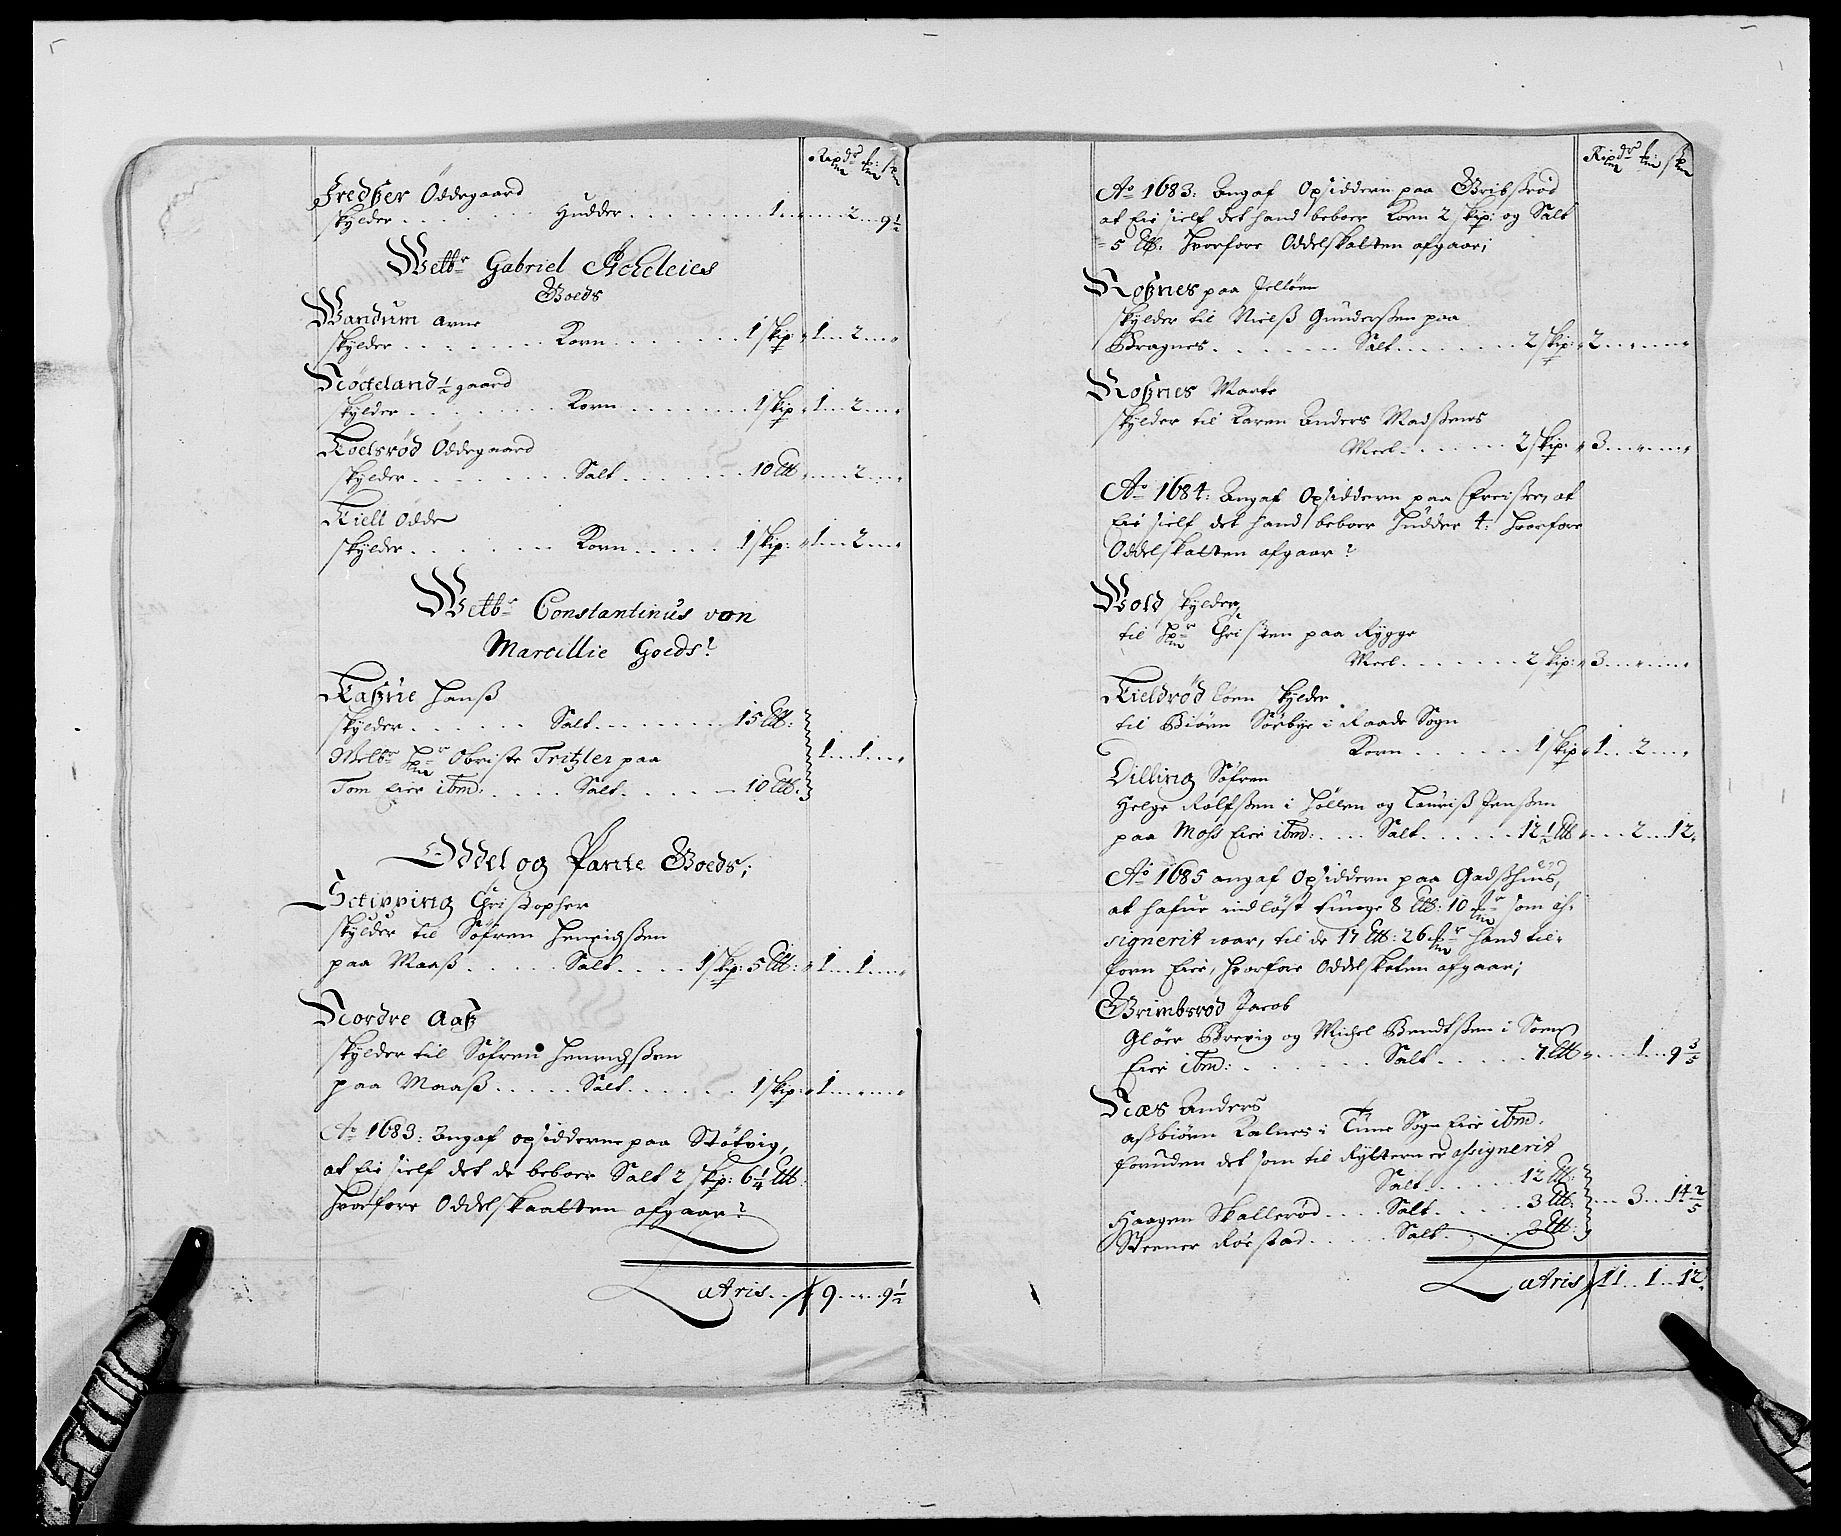 Ripdr ß
Öddegaard
skylder . . . . . . Hudder . . . . . . . 1 . . . . . 2 . . 9½
Welbr Gabriel Acheleies
Goeds
Wandum Arne
skylder . . . . . . Korn . . . . . . 1 skip: 1 . . 2 . .
½ gaard
skylder . . . . . . Korn . . . . . . 1 skip 1 . . 2 . .
Koelsrød Öddegaard
skylder . . . . . . Salt . . . . . . 10 ℔ . . . 2 . .
Kiell Odde
skylder . . . . . . Korn . . . . . 1 skip: 1 . . 2 . .
Welbr Constantinus von
Marcillie Goeds
Hanß
skylder . . . . . Salt . . . . . . 15 ℔:
Welbr Hr Obriste Tritzler paa
Tom Eier ibm: . . . . Salt . . . . . 10 ℔: 1 . . 1 . .
Oddel og Parte Goeds;
Schipping Christopher
skylder til Søfren Henrichßen
paa Maaß . . . . . Salt . . . . 1 skip: 5 ℔: 1 . . 1 . .
Nordre Aaß
skylder til Søfren Henrichßen
paa Maaß . . . . . Salt . . . . . . 1 skip: 1 . . . .
Ao 1683: Angaf opsidderne paa Støtvig,
at Eie sielf det de beboer Salt 2 skp: 6¼ ℔:
hvorfore Oddelskaatten afgaar
Latris . . 9 . . . . 9½
Ripdr ß
Ao 1683: Angaf Opsiddern paa Gribsrød
at Eie sielf det hand beboer Korn 2 skip: og Salt
5 ℔: hvorfore Oddelskatten afgaar;
Roßnes paa Jelløen
skylder til Nielß Gunderßen paa
Bragnes . . . . . . Salt . . . . . . 2 skip: 2 . . . . .
Roßnes Marte
skylder til Karen Anders Madsens
Meel . . . . . . 2 skip: 3 . . . . .
Ao 1684: Angaf Opsiddern paa at
Eie sielf det hand beboer Hudder 4: hvorfore
Oddelskatten afgaar
Wold skylder
til Hr Christen paa Rygge
Meel . . . . . . 2 skip: 3 . . . . .
Kieldrød løen skylder
til Biørn Sørbye i Raade Sogn
Korn . . . . . . 1 skip 1 . . 2 . .
Dilling Søfren
Helge Rolfßen i Høllen og Lauriß Jenßen
paa Moss Eier ibm: . . . . Salt . . . . . . 12½ ℔ . . . 2 . . 12
Ao 1685 angaf Opsiddern paa Gadshuus,
at hafue indløst tunge 8 ℔: 10 som as-
signerit war, til de 17 ℔: 26 hand til-
forn Eier, hvorfore Oddelskatten afgaar;
Grimbsrød Jacob
Gloer Brevig og Michel Bendtßen i Soen
Eier ibm: . . . . . . Salt . . . . . 7 ℔ . . . . 1 . . 9 3/5
Næs Anders
Aßbiørn Kalnes i Tune Sogn Eier ibm.
foruden det som til Rytteren er assignerit
Salt . . . . . . 12 ℔:
Haagen Skallerød . . . . Salt . . . . . . 3 ℔: . . . 3 . . 14 2/5
Steener Roestad . . . . . Salt . . . . . 3 ℔:
Latris 11 . . 1 . . 12